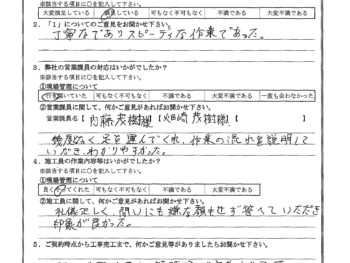 ※該当する項目に○を記入して下さい。
大変満足している 満足している 可もなく不可もなく 不満である 大変不満である
2．「1」についてのご意見をお聞かせ下さい。
丁寧でありスピーディな作業であった。
3．弊社の営業課員の対応はいかがでしたか？
①現場管理について
※該当する項目に○を記入して下さい。
いていた 可もなく不可もなく 不満である 大変不満である 一度も会わなかった
②営業課員に関して、何かご意見があればお聞かせ下さい。
営業課員名【
幾度なく足を運んでくれ、作業の流れを説明して
いただき、わかりやすかった。
4．施工員の作業内容等はいかがでしたか？
①現場管理について
※該当する項目に○を記入して下さい。
良く てくれた 可もなく不可もなく 不満である 大変不満である
②施工員に関して、何かご意見があればお聞かせ下さい。
礼儀正しく、問いにも嫌な顔もせず答えていただき
印象が良かった。
5．ご契約時点から工事完工まで、何かご意見等がありましたらお聞かせ下さい。